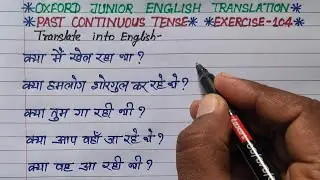 *OXFORD JUNIOR ENGLISH TRANSLATION
*PAST CONTINUOUS TENSE *EXERCISE-104
Translate into English-
क्या मैं खेल रहा था ?
क्या हमलोग शोरगुल कर रहे थे ?
क्या तुम गा रही थी ?
क्या आप वहाँ जा रहे थे ?
क्या वह आ रही थी ?